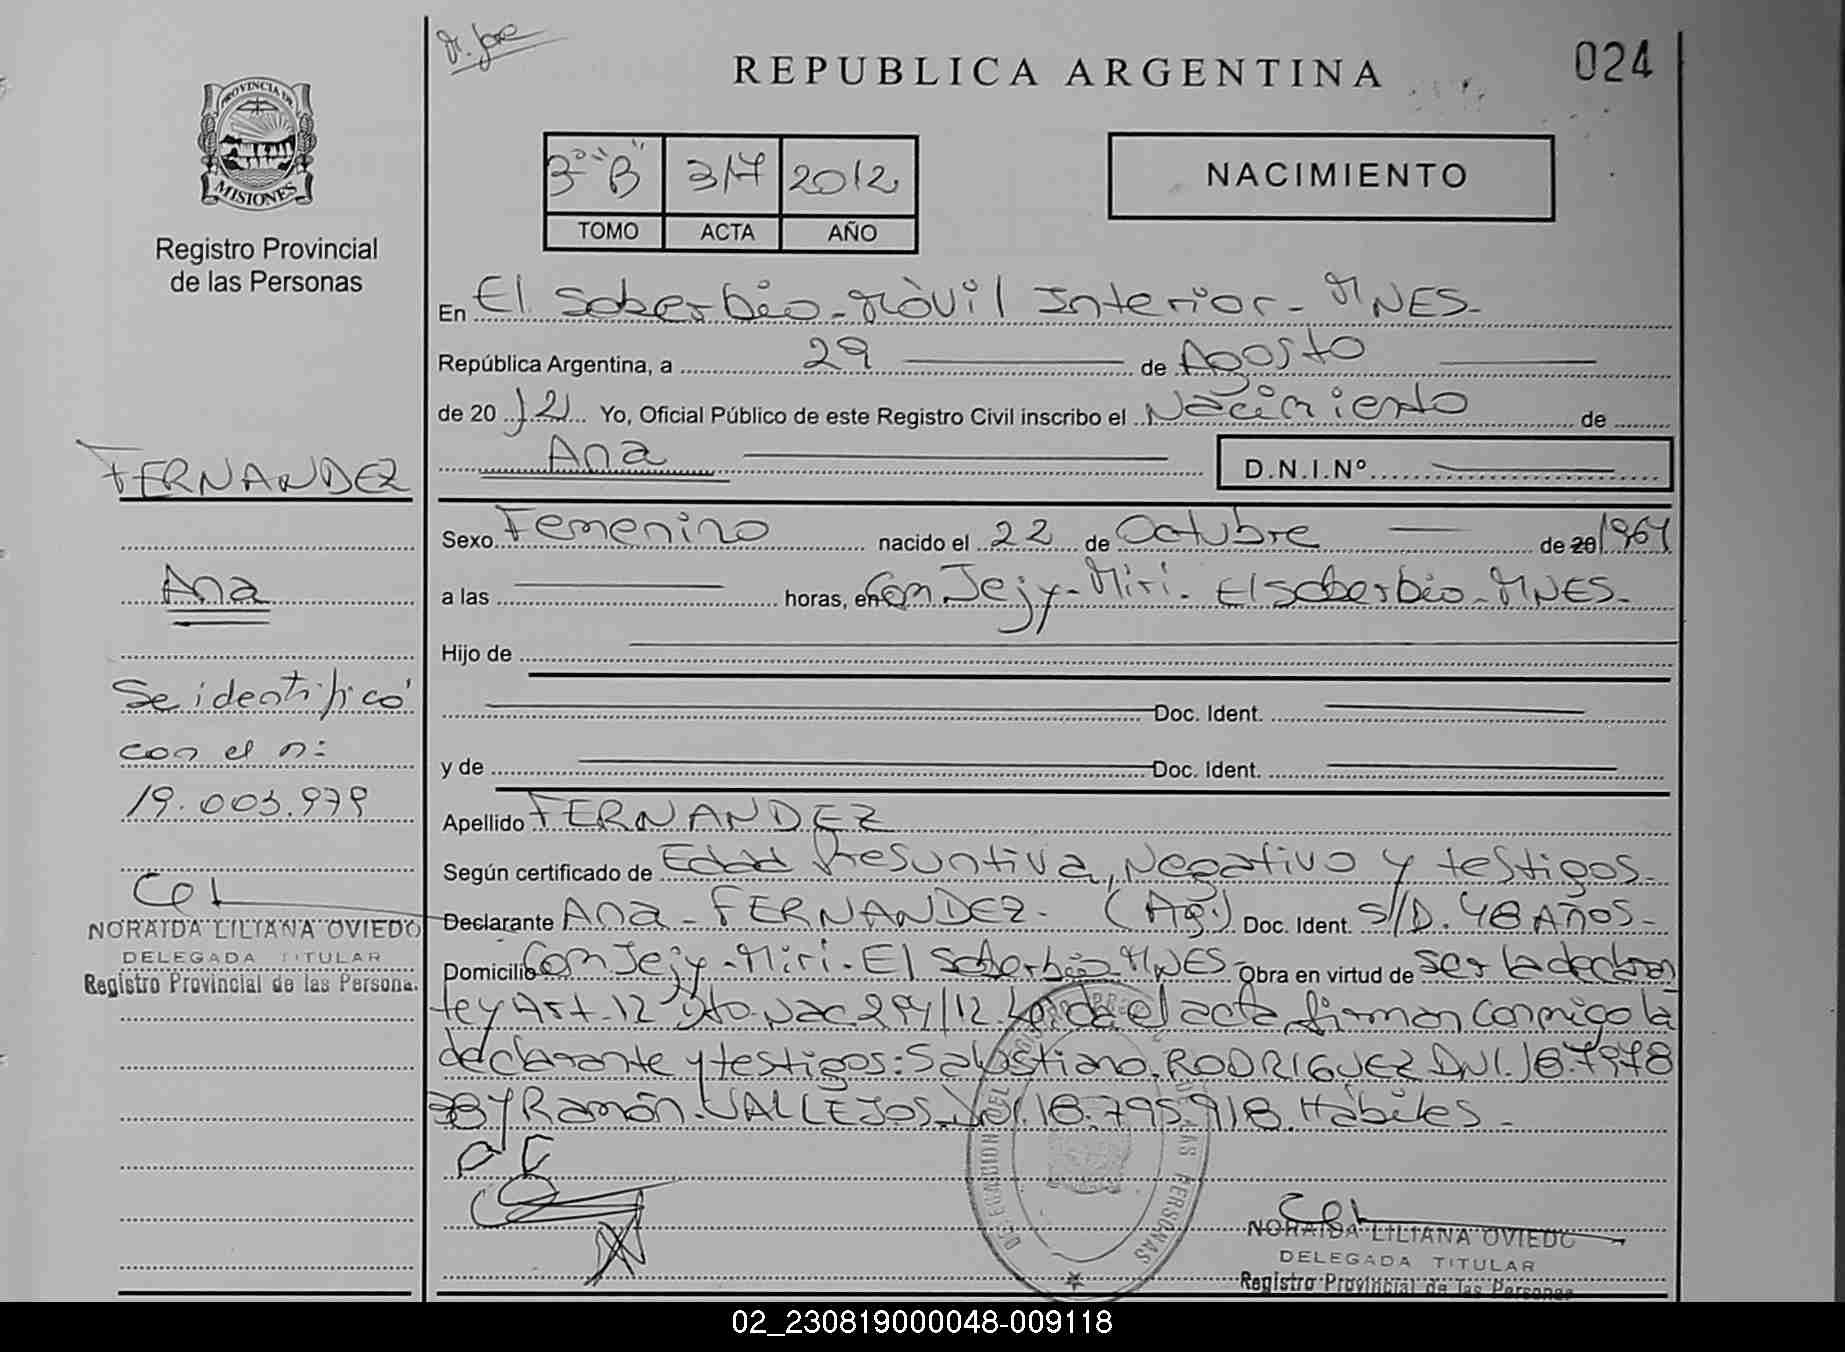 024
REPUBLICA ARGENTINA
PROVINCIA DE
MISIONES
Registro Provincial
de las Personas
3º "B" 317 2012
TOMO ACTA AÑO
NACIMIENTO
En El Soberbio - Móvil Interior - MNES -
República Argentina, a 29 de Agosto
de 2012 Yo, Oficial Público de este Registro Civil inscribo el Nacimiento de
Ana D.N.I.Nº
FERNANDEZ
Ana
Se identificó
con el n:
19.003.979
NORAIDA LILIANA OVIEDO
DELEGADA TITULAR
Registro Provincial de las Persona.
Sexo Femenino nacido el 22 de Octubre de 20 1964
a las horas, en Com Jejy - Miri. El soberbio - MNES -
Hijo de
Doc. Ident.
y de Doc. Ident.
Apellido FERNANDEZ
Según certificado de Edad Presuntiva, Negativo y testigos -
Declarante Ana - FERNANDEZ - (Ag.) Doc. Ident. S/D. 48 AÑOS -
Domicilio Com Jejy - Miri. El Soberbio - MNES - Obra en virtud de ser la declaran
te y Art. 12 Dto. Nac 294/12. Leída el acta, firman conmigo la
declarante y testigos: Salustiano. RODRIGUEZ DNI. 18.7978
y Ramón. VALLEJOS 18.795.918. Hábiles -
NORAIDA LILIANA OVIEDO
DELEGADA TITULAR
Registro Provincial de las Persona
02_230819000048-009118